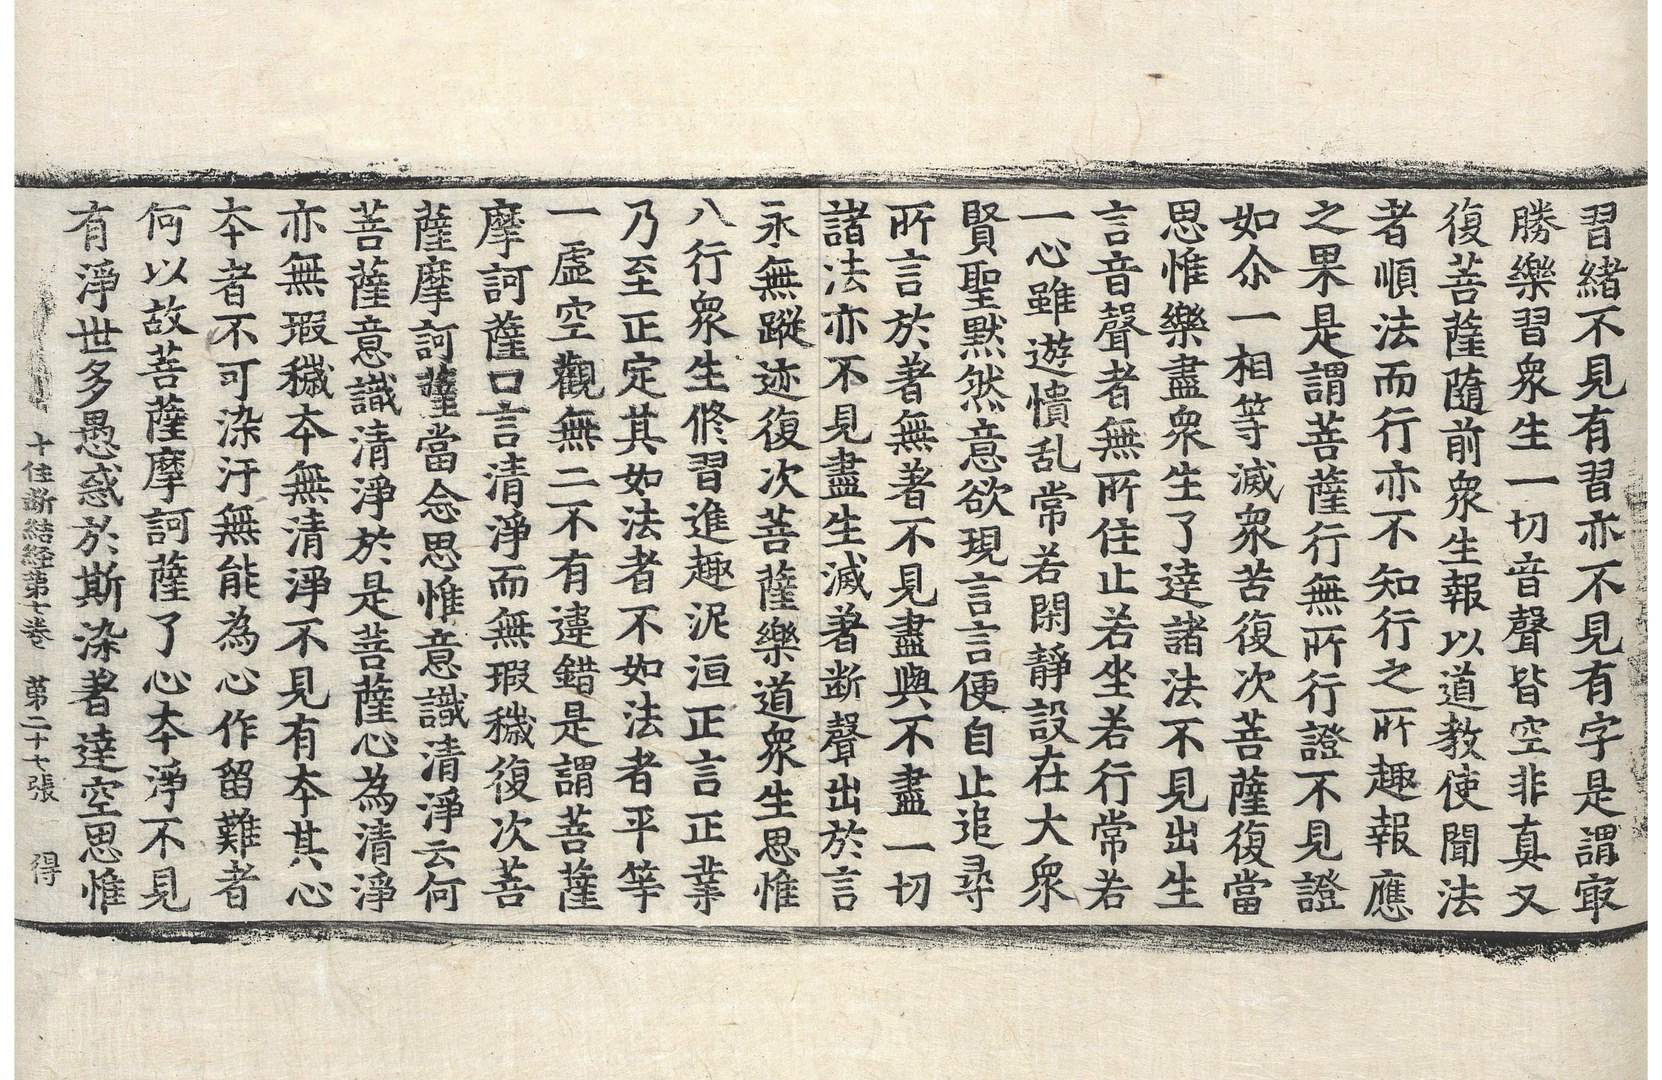 習緒不見有習亦不見有字是謂㝡
勝樂習衆生一切音聲皆空非真又
復菩薩隨前衆生報以道教使聞法
者順法而行亦不知行之所趣報應
之果是謂菩薩行無所行證不見證
如尒一相等滅衆苦復次菩薩復當
思惟樂盡衆生了達諸法不見出生
言音聲者無所住止若坐若行常若
一心雖遊憒乱常若閑靜設在大衆
賢聖默然意欲現言言便自止追尋
所言於著無著不見盡與不盡一切
諸法亦不見盡生滅著断聲出於言
永無蹤迹復次菩薩樂道衆生思惟
八行衆生修習進趣泥洹正言正業
乃至正定其如法者不如法者平等
一虛空觀無二不有違錯是謂菩薩
摩訶薩口言清淨而無瑕穢復次菩
薩摩訶薩當念思惟意識清淨云何
菩薩意識清淨於是菩薩心為清淨
亦無瑕穢本無清淨不見有本其心
本者不可染汙無能為心作留難者
何以故菩薩摩訶薩了心本淨不見
有淨世多愚惑於斯染著達空思惟
十住断結経第七卷 第二十七張 得